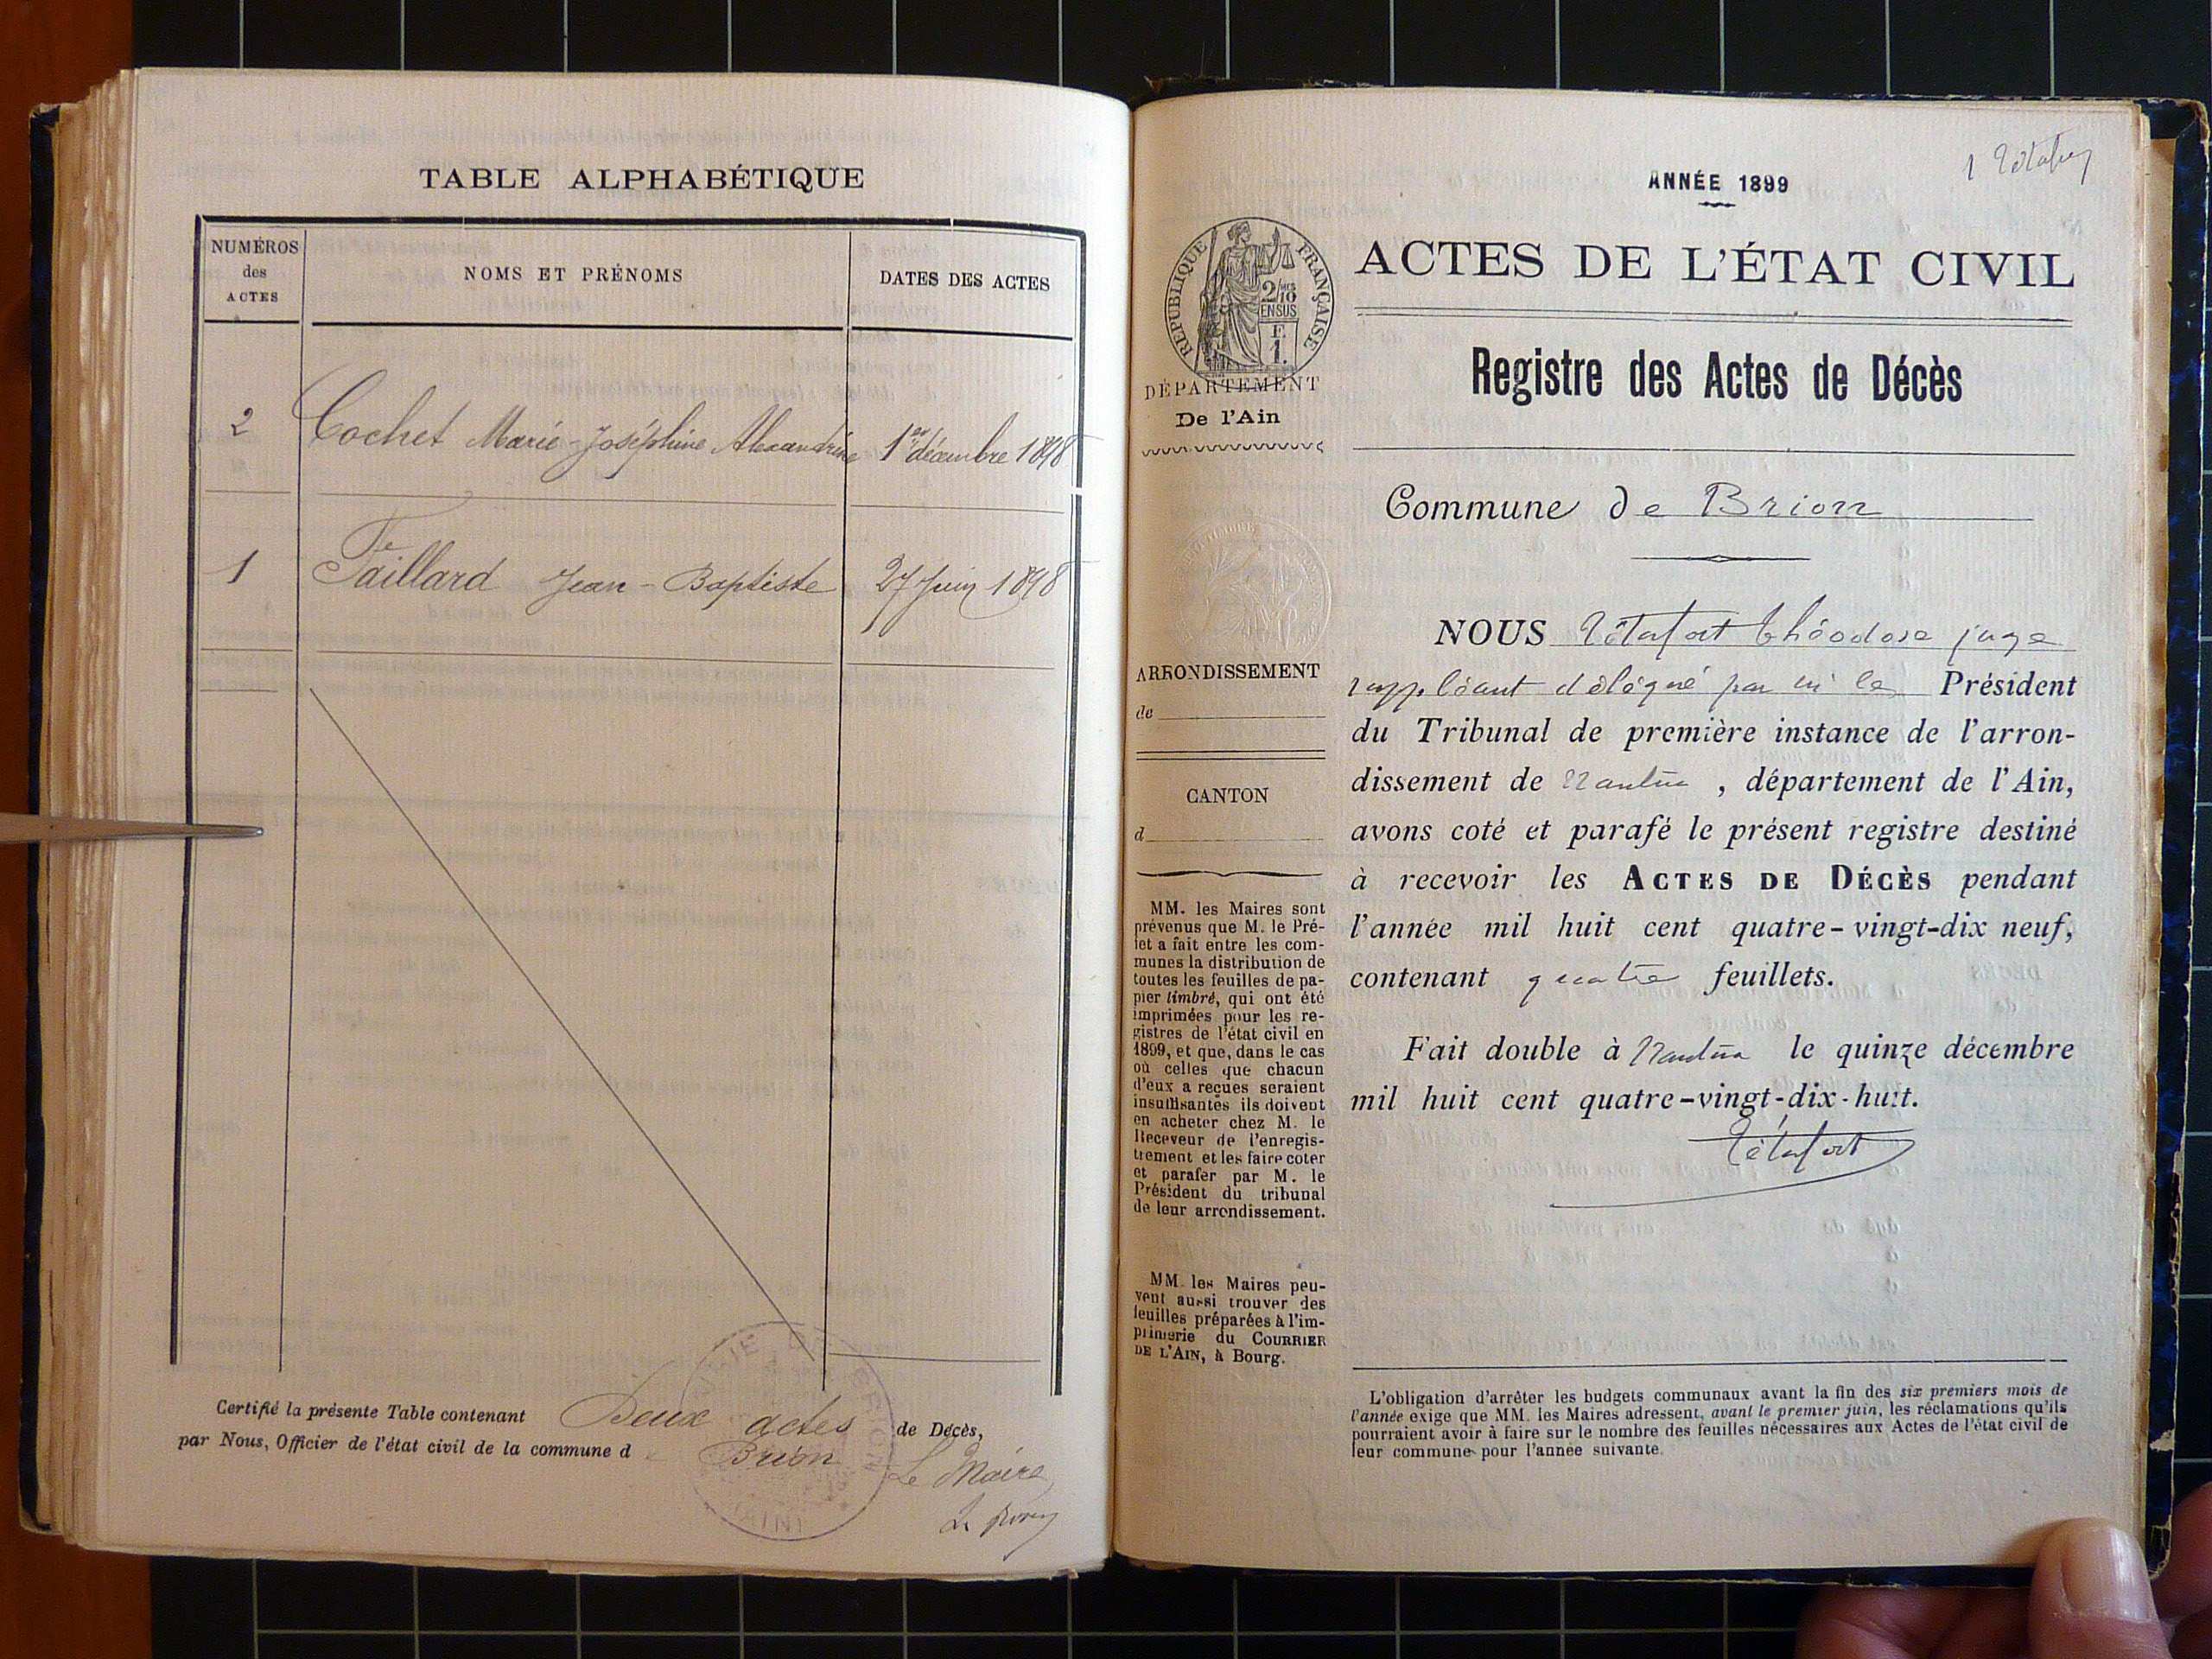 TABLE ALPHABÉTIQUE
NUMÉROS
des
ACTES
NOMS ET PRÉNOMS
DATES DES ACTES
2 Cochet Marie-Joséphine Alexandrine 1er décembre 1898
1 Taillard Jean-Baptiste 27 Juin 1898
Certifié la présente Table contenant Deux actes de Décès,
par Nous, Officier de l'état civil de la commune d Brion
Le Maire
ANNÉE 1899
RÉPUBLIQUE FRANÇAISE
2/10
EN SUS
F.
1.
DÉPARTEMENT
De l'Ain
ARRONDISSEMENT
de
CANTON
d
MM. les Maires sont
prévenus que M. le Pré-
fet a fait entre les com-
munes la distribution de
toutes les feuilles de pa-
pier timbré, qui ont été
imprimées pour les re-
gistres de l'état civil en
1899, et que, dans le cas
où celles que chacun
d'eux a reçues seraient
insuffisantes ils doivent
en acheter chez M. le
Receveur de l'enregis-
trement et les faire coter
et parafer par M. le
Président du tribunal
de leur arrondissement.
MM. les Maires peu-
vent aussi trouver des
feuilles préparées à l'im-
primerie du COURRIER
DE L'AIN, à Bourg.
ACTES DE L'ÉTAT CIVIL
Registre des Actes de Décès
Commune de Brion
NOUS Tétafort Théodose juge
suppléant délégué par M le Président
du Tribunal de première instance de l'arron-
dissement de Nantua, département de l'Ain,
avons coté et parafé le présent registre destiné
à recevoir les ACTES DE DÉCÈS pendant
l'année mil huit cent quatre-vingt-dix neuf,
contenant quatre feuillets.
Fait double à Nantua le quinze décembre
mil huit cent quatre-vingt-dix-huit.
Tétafort
L'obligation d'arrêter les budgets communaux avant la fin des six premiers mois de
l'année exige que MM. les Maires adressent, avant le premier juin, les réclamations qu'ils
pourraient avoir à faire sur le nombre des feuilles nécessaires aux Actes de l'état civil de
leur commune pour l'année suivante.